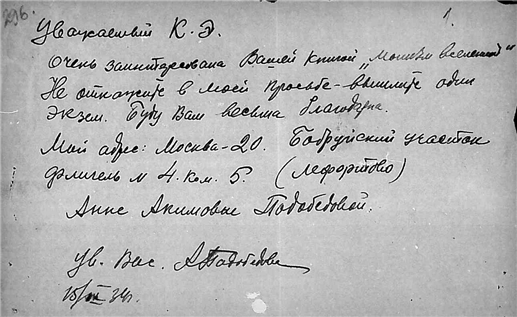 296.
1.
Уважаемый К. Э.
Очень заинтересована Вашей книгой „Монизм вселенной"
Не откажите в моей просьбе – вышлите один
экзем. Буду Вам весьма благодарна.
Мой адрес: Москва-20. Бобруйский участок
флигель N 4. ком. 5. (Лефортово)
Анне Акимовне Подобедовой.
Ув. Вас. АПодобедова
34г.